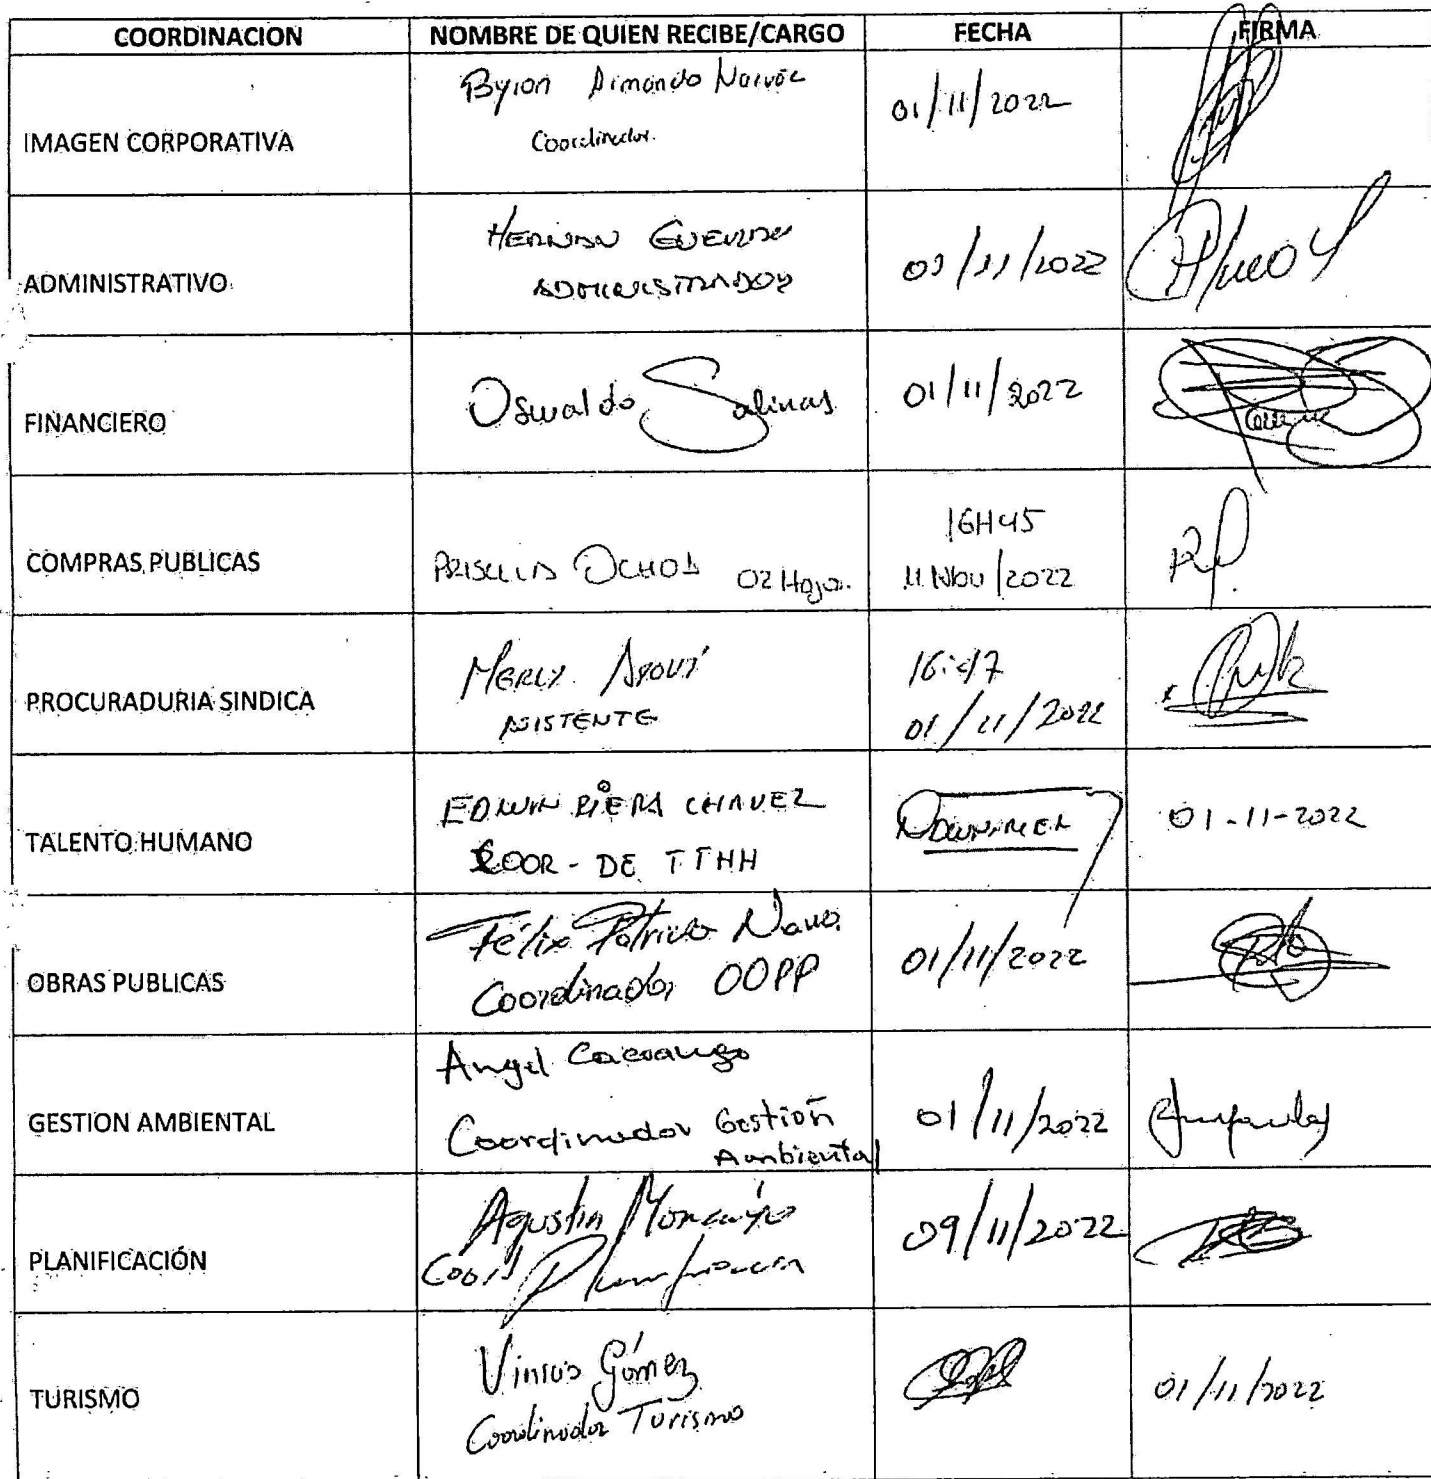 COORDINACION NOMBRE DE QUIEN RECIBE/CARGO FECHA FIRMA
IMAGEN CORPORATIVA
Byron Armando
Coordinador.
01/11/2022
ADMINISTRATIVO
HERNAN
ADMINISTRADOR
/11/2022
FINANCIERO
Oswaldo Salinas
01/11/2022
COMPRAS PUBLICAS
PRISCILA OCHOA 02 Hojas.
16H45
Nov/2022
PROCURADURIA SINDICA
MERLY
ASISTENTE
16:47
01/11/2022
TALENTO HUMANO
EDWIN RIERA CHAVEZ
COOR - DE TTHH
01-11-2022
OBRAS PUBLICAS
Félix Patricio
Coordinador OOPP
01/11/2022
GESTION AMBIENTAL
Angel
Coordinador Gestión
Ambiental
01/11/2022
PLANIFICACIÓN
Agustin Moncayo
09/11/2022
TURISMO
Gómez
Coordinador Turismo
01/11/2022